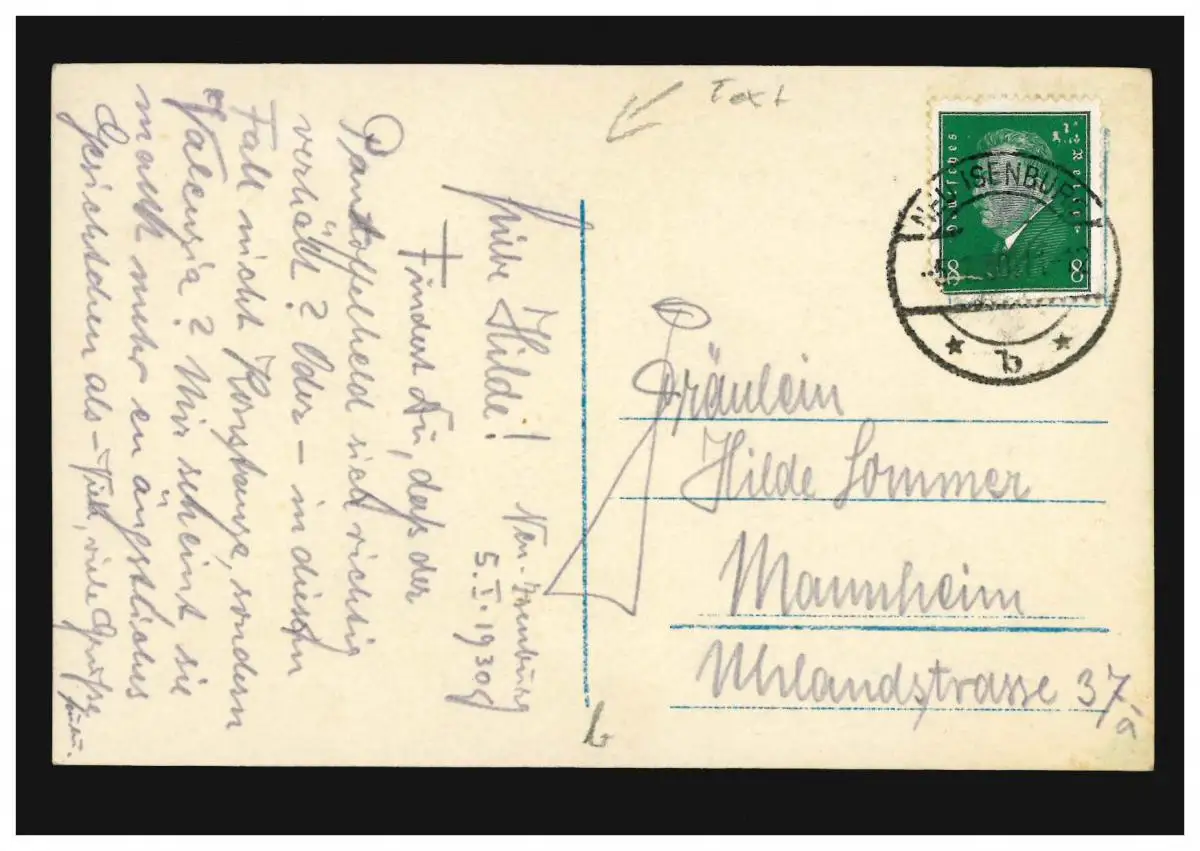 Text
Deutsches Reich
8 8
NEU-ISENBURG
b
Neu-Isenburg
5.I.1930
Liebe Hilde!
Findest Du, daß der
Pantoffelheld sich richtig
verhält? Oder – in diesem
Fall nicht Konstanze, sondern
Valenzia? Mir scheint sie
macht mehr en ängstliches
Gesichtchen als – Viele, viele Grüße
Fräulein
Hilde Sommer
Mannheim
Uhlandstrasse 37a
b